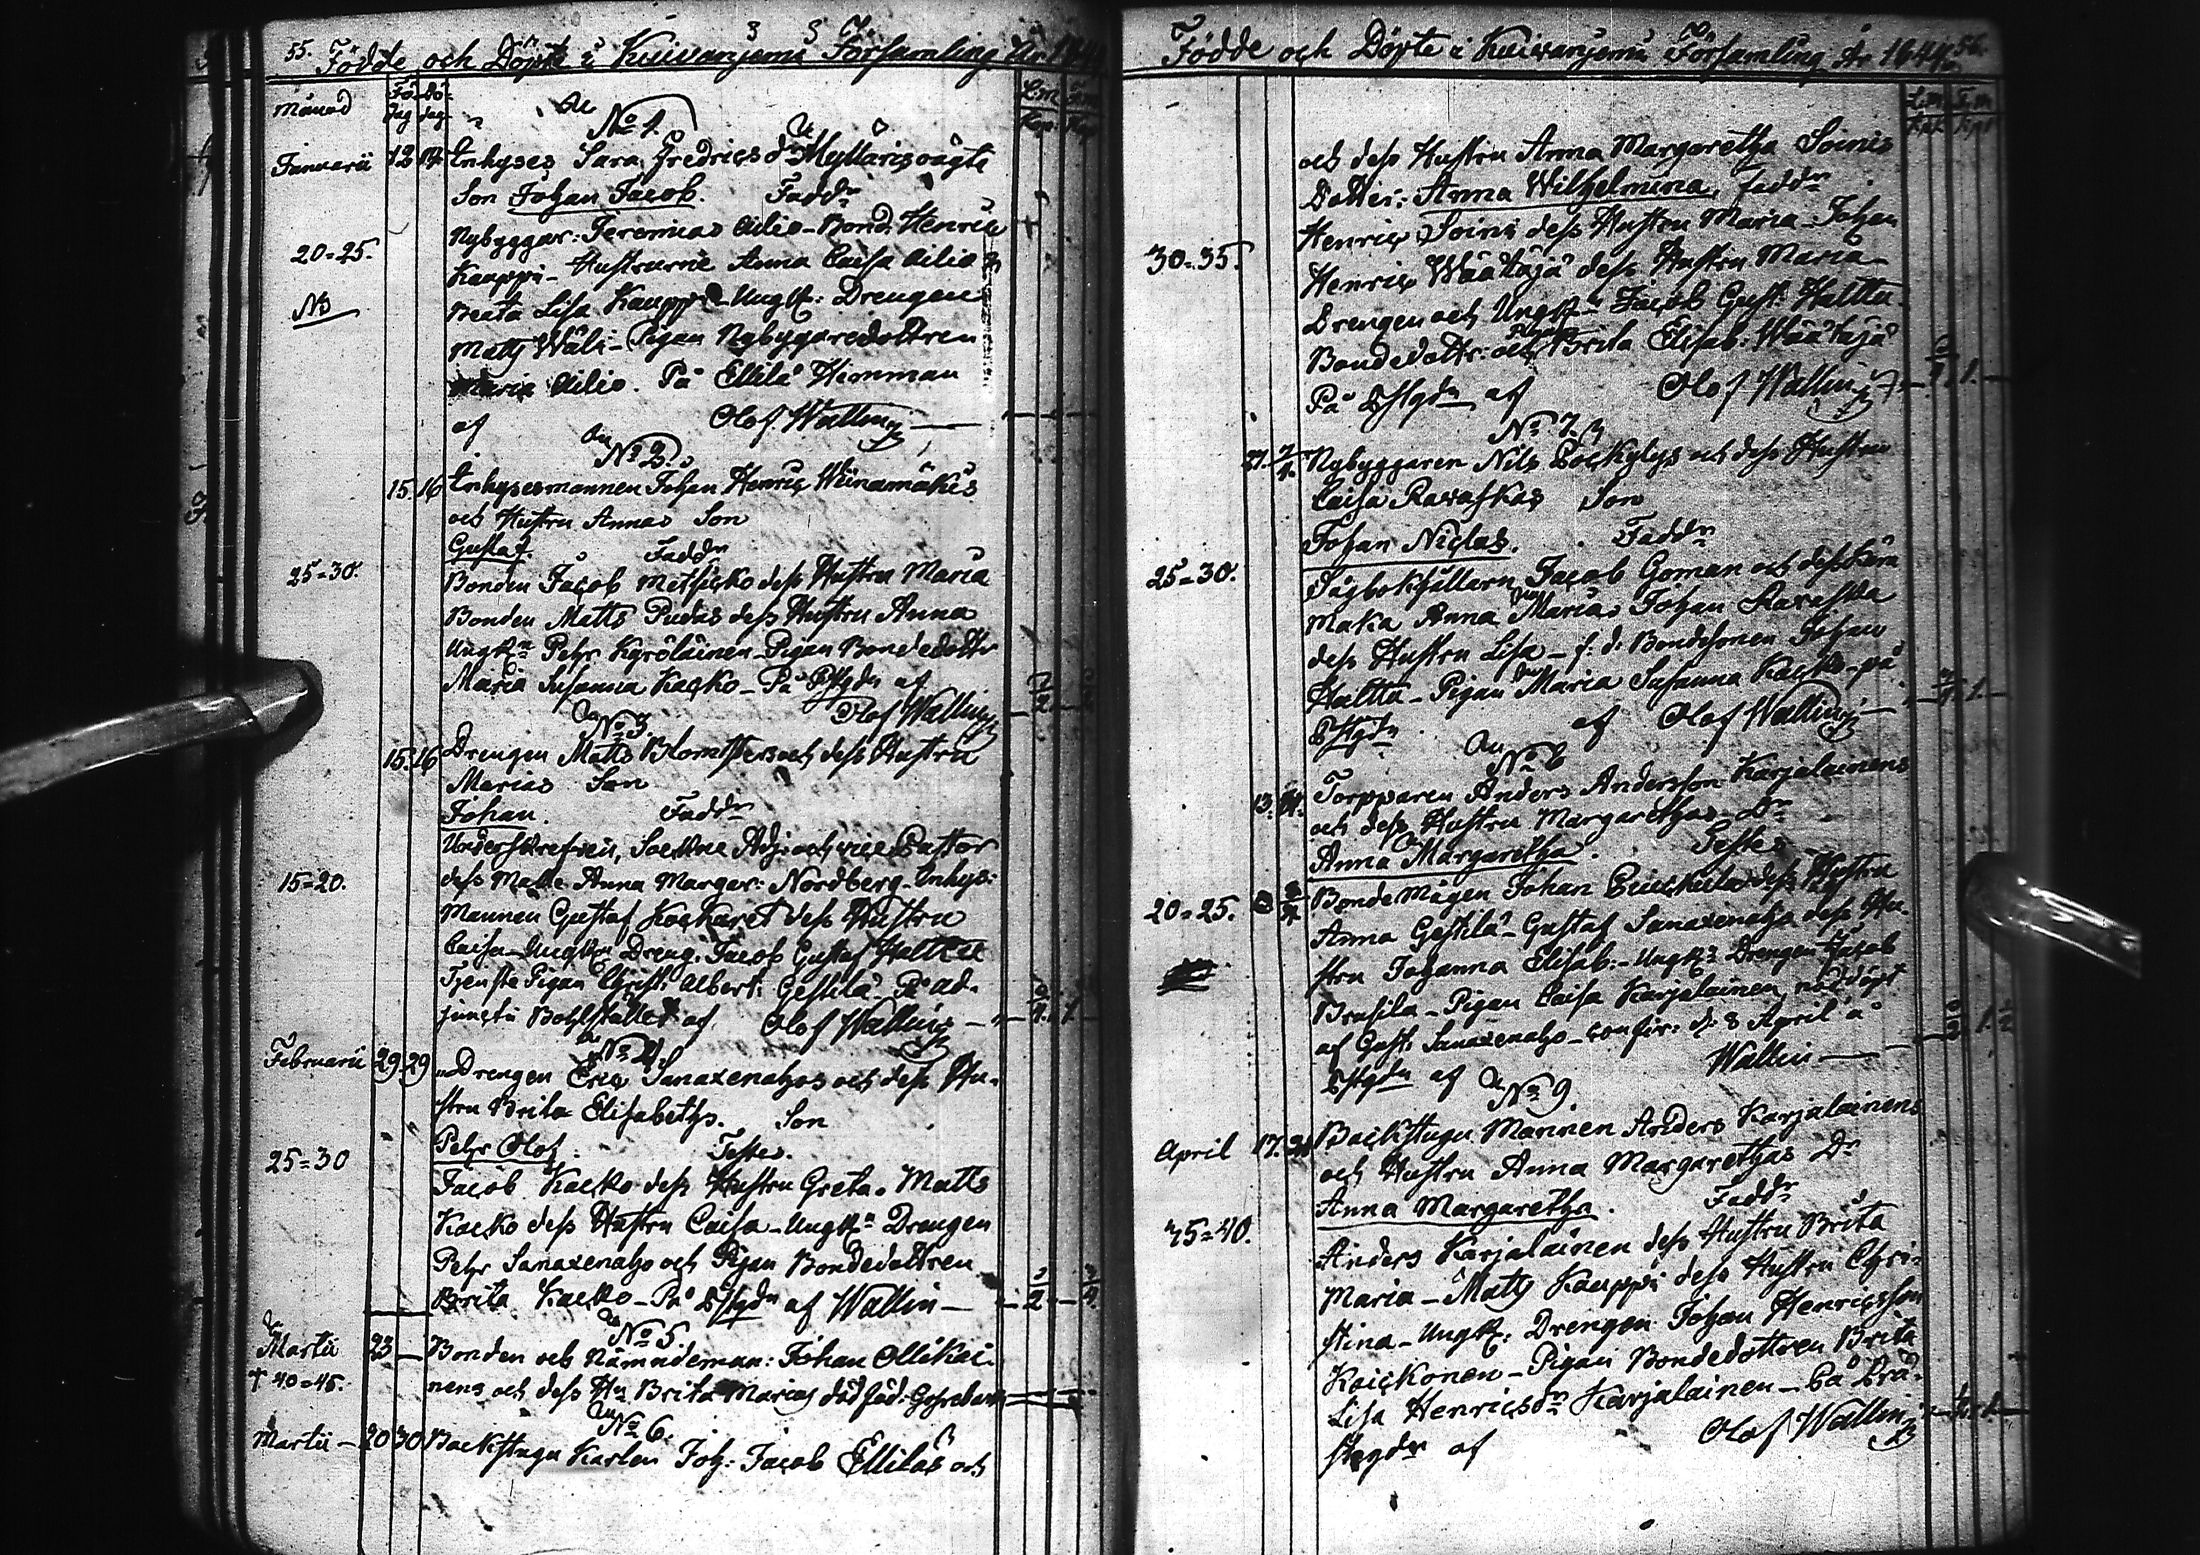 55. Födde och Döpte i Kuivaniemi Församling År 1844
Månad Fö- Dö-
dag dag
No 1.
Januarii 12 14 Inhyses Sara Fredricsdr Myllaris oägta
Son Johan Jacob. Faddr
Nybyggar: Jeremias Ailio - Bond. Henric
20=25. Kauppi - Hustrurne Anna Caisa Ailio
Nb Beata Lisa Kauppi - Ungk: Drengen
Matts Wäli - Pigan Nybyggaredottren
Maria Ailio. På Ellilä Hemman
af Olof Wallin
No 2.
15. 16 Inhysesmannen Johan Henric Wiinamäkis
och Hustru Annas Son
Gustaf. Faddr
25=30. Bonden Jacob dess Hustru Maria
Bonden Matts Pudas dess Hustru Anna
Ungkn Pehr Kyröläinen - Pigan Bondedottr
Maria Susanna Kacko - På af
Olof Wallin
No 3.
15. 16 Drengen Matts och dess Hustru
Marias Son
Johan. Faddr
Underskrefven, Sockne Adj: och vice Pastor
15=20. dess Maka Anna Margar: Nordberg - Inhys:
Mannen Gustaf dess Hustru
Caisa - Ungkn Dreng. Jacob Gustaf Haltta
Tjenste Pigan Christ: Albert: Gestilä - På ad-
juncts Bohlstället af Olof Wallin
No 4.
Februarii 29 29 Drengen Eric Sanaxenahos och dess Hu-
stru Brita Elisabeths. Son
Pehr Olof: Testes.
25=30 Jacob Kacko dess Hustru Greta. Matts
Kacko dess Hustru Caisa - Ungkn Drengen
Pehr Sanaxenaho och Pigan Bondedottren
Brita Kacko - På af Wallin
No 5.
Martii 23 - Bonden och Nämndeman: Johan Ollikai-
+ 40=45. nens och dess Hu Brita Marias död föd:
No 6.
Martii - 20 30 Backstugu Karlen Joh: Jacob Ellilas och
Födde och Döpte i Kuivaniemi Församling År 1844. 56.
och dess Hustru Anna Margaretha Soinis
Dotter: Anna Wilhelmina. Faddr
Henric Soini dess Hustru Maria - Johan
30=35. Henric Wäätäjä dess Hustru Maria
Drengen och Ungkn Jacob Gust: Haltta
Bondedottr: och Pigan Brita Elisab: Wäätäjä
På af Olof Wallin
No 7.
27. 7/4. Nybyggaren Nils och dess Hustru
Caisa Ravaskas Son
Johan Niclas. Faddr
25=30. Sågbokhållarn Jacob Goman och dess kära
Maka Anna Maria Johan Ravaska
dess Hustru Lisa - f: d: Bondesonen Johan
Haltta - Pigan Maria Susanna Kacko - på
af Olof Wallin
No 8
13. 14. Torpparen Anders Andersson Karjalainens
och dess Hustru Margarethas Dr
Anna Margaretha. Testes
20=25. Bonde Mågen Johan dess Hustru
Anna Gestilä - Gustaf Sanaxenaho dess Hu-
stru Johanna Elisab: - Ungkn Drengen Jacob
Brusila - Pigan Caisa Karjalainen nöddöpt
af Gust: Sanaxenaho - confir: d: 8 April å
af Wallin
No 9.
April 17. 21 Backstugu Mannen Anders Karjalainens
och Hustru Anna Margarethas Dr
Anna Margaretha. Faddr
35=40. Anders Karjalainen dess Hustru Brita
Maria - Matts Kauppi dess Hustru Chri-
stina - Ungk: Drengen Johan Henricsson
Kaickonen - Pigan Bondedottren Brita
Lisa Henricsdr Karjalainen - på Prä-
stegdn af Olof Wallin